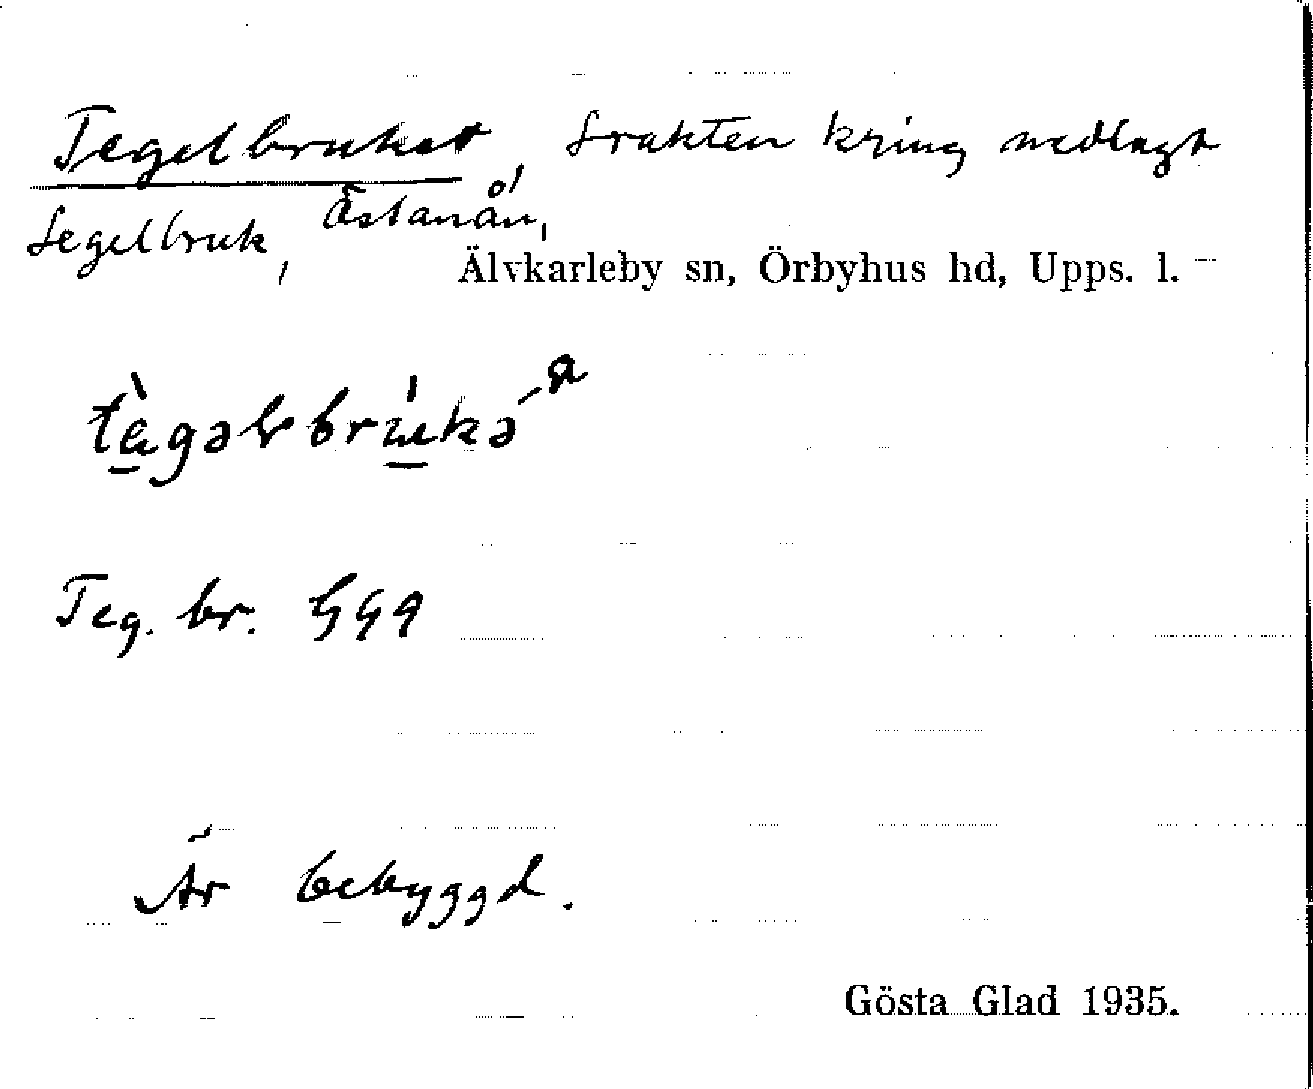 Tegelbruket, trakten kring nedlagt
tegelbruk, Östanån,
Älvkarleby sn, Örbyhus hd, Upps. l.
Teg. br. GGA
Är bebyggd.
Gösta Glad 1935.